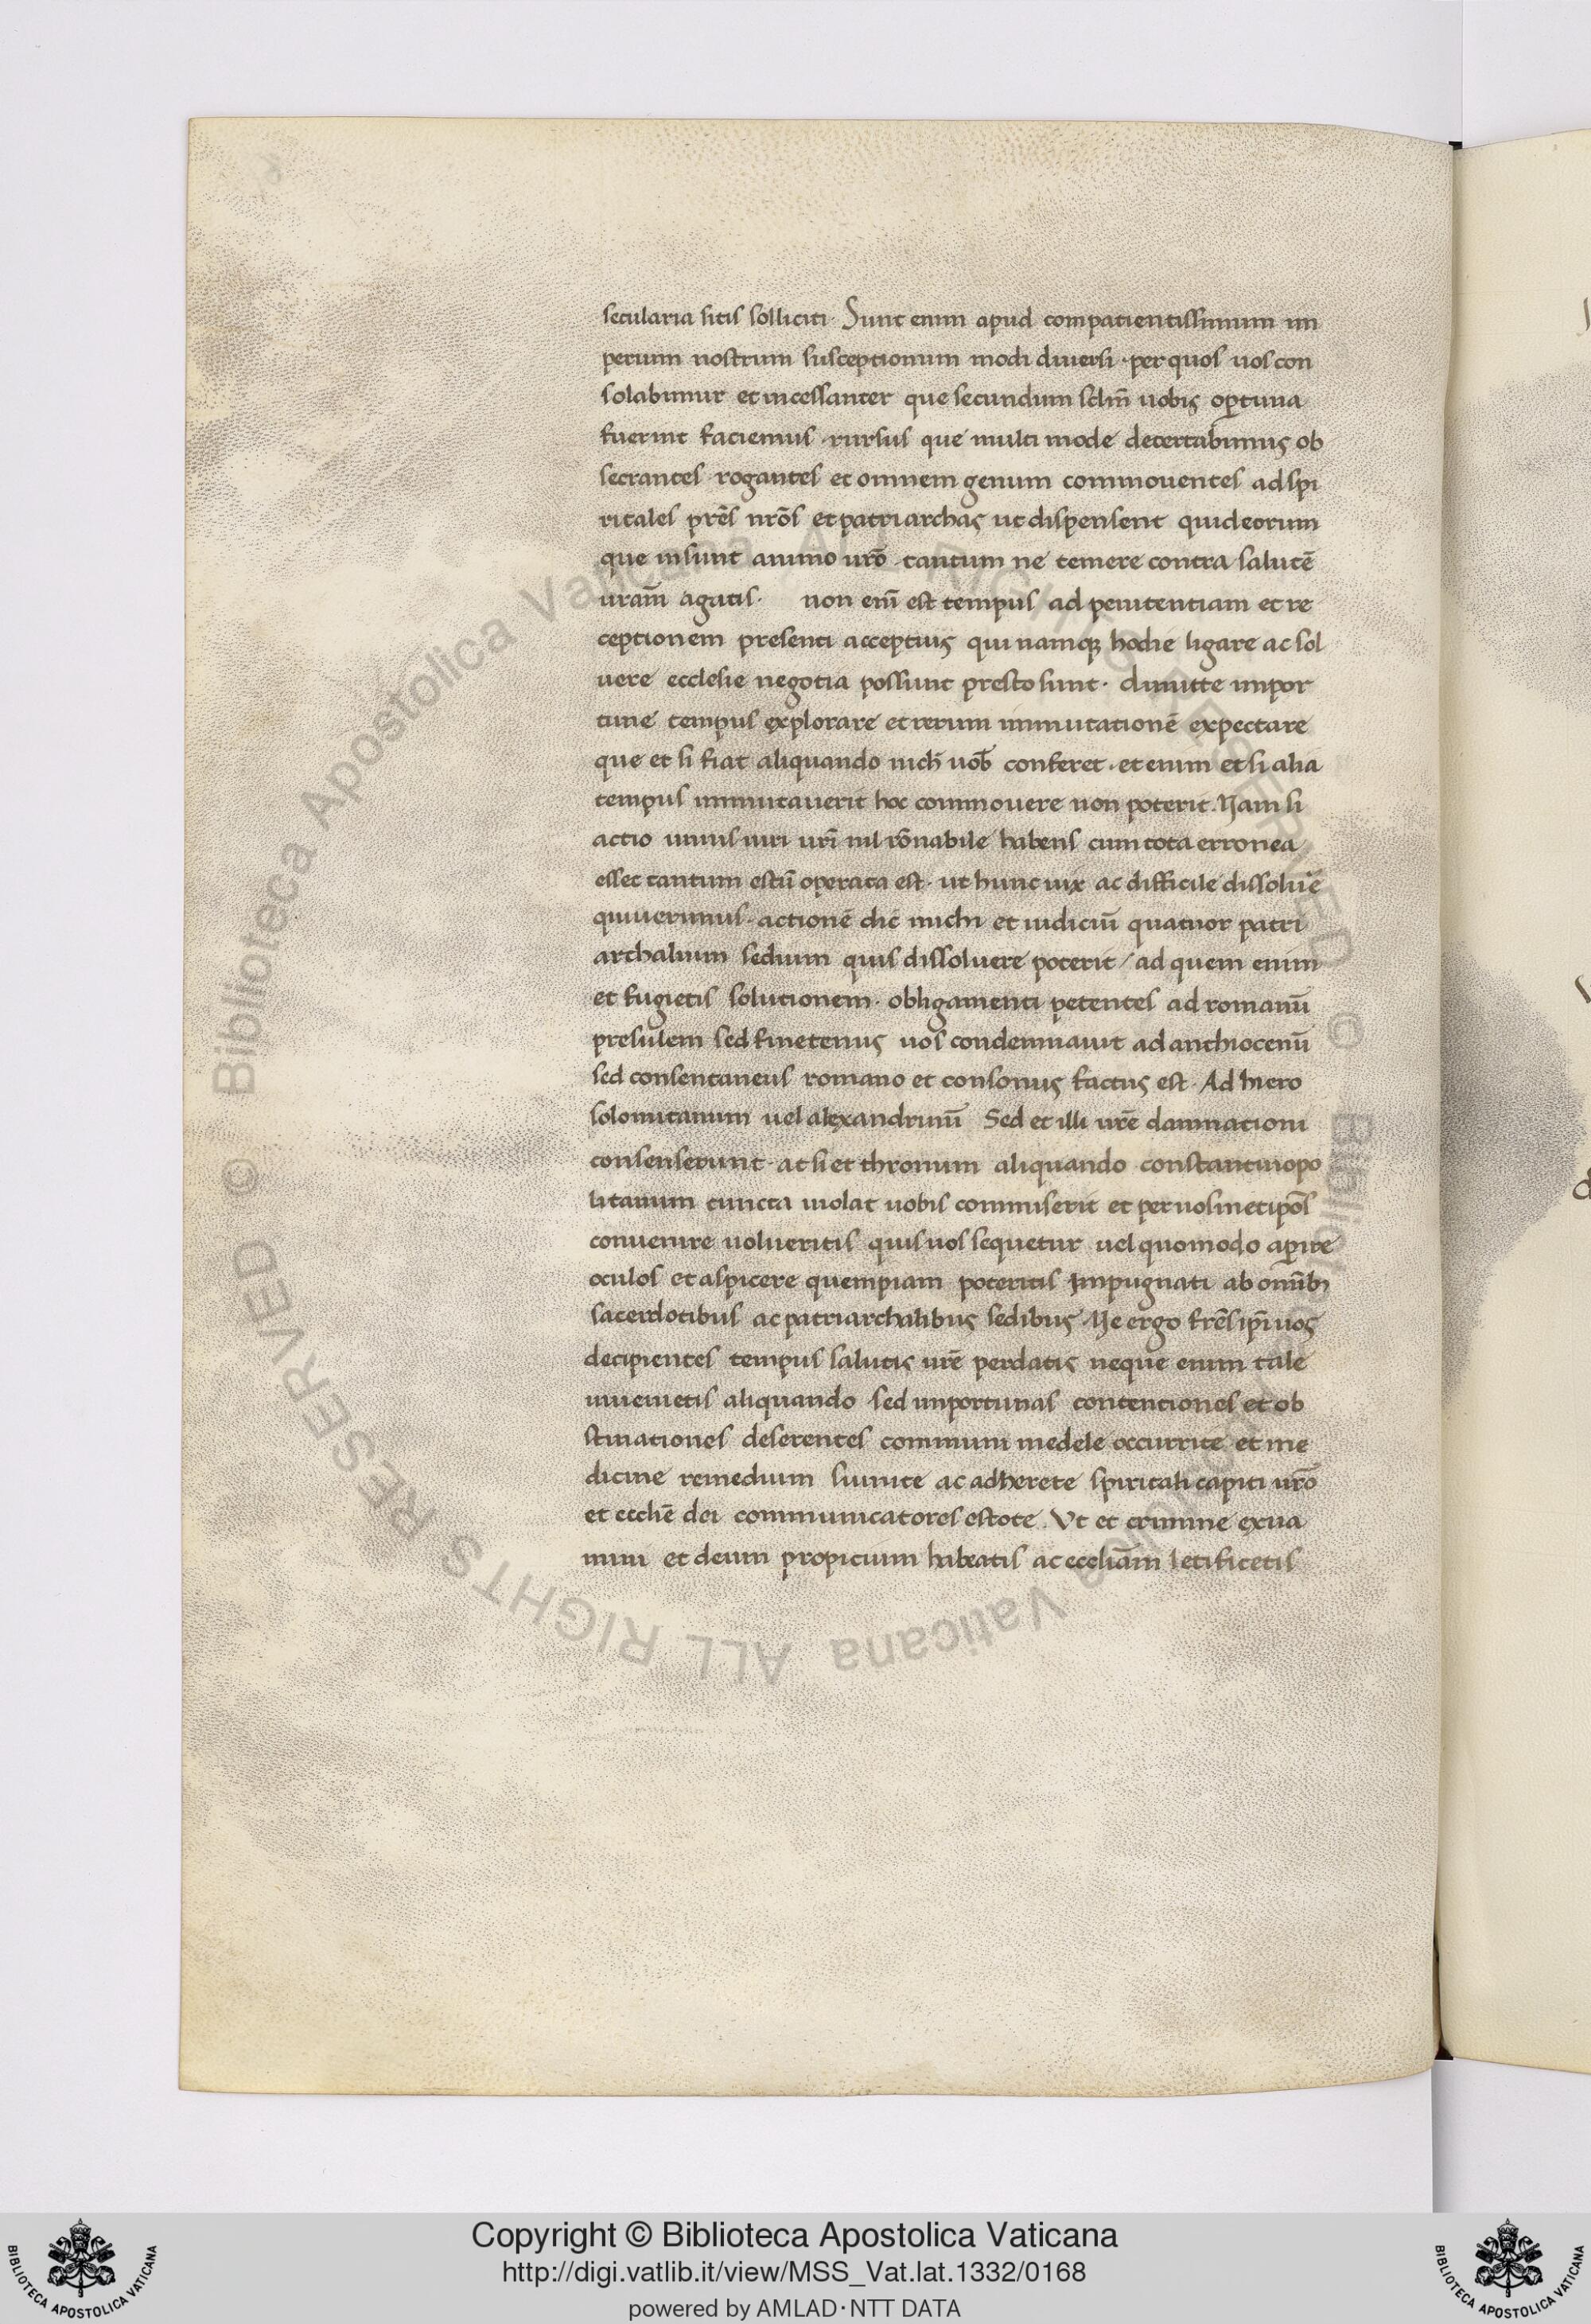 secularia sitis solliciti. Sunt enim apud compatientissimum im
perium nostrum susceptionum modi diuersi. per quos uos con
solabimur et incessanter que secundum sclm̄ uobis op̱tuna
fuerint faciemus. rursus que multi mode decertabimus ob
secrantes rogantes et omnem genum commouentes ad spi
ritales pr̄es nr̄os et patriarchas ut dispensent quid eorum
que insunt animo ur̄o. tantum ne temere contra salutē
uram̄ agatis. non enī est tempus ad penitentiam et re
ceptionem presenti acceptius qui namqꝫ hodie ligare ac sol
uere ecclesie negotia possunt presto sunt. dimitte inpor
tune tempus explorare et rerum inmutationē expectare
que et si fiat aliquando nich̄ uob̄ conferet. et enim et si alia
tempus inmutauerit hoc commouere non poterit. Nam si
actio unius uiri uri̅ nil rōnabile habens cum tota erronea
esset tantum estū operata est. ut hunc uix ac difficile dissolue̅
quiuerimus. actionē dic̄ michi et iudiciū quatuor patri
archalium sedium quis dissoluere poterit / ad quem enim
et fugietis solutionem. obligamenti petentes ad romanū
presulem sed finetenus uos condemnauit ad anthiocenū
sed consentaneus romano et consonus factus est. Ad hiero
solomitanum uel alexandrinū Sed et illi ur̄e damnationi
consenserunt. at si et thronum aliquando constantinopo
litanum cuncta uiolat uobis commiserit et per uosmetip̄os
conuenire uolueritis quis uos sequetur uel quomodo ap̱ire
oculos et aspicere quempiam poteritis Impugnati ab omībꝫ
sacerdotibus ac patriarchalibus sedibus. Ne ergo fr̄es ip̄i uos
decipientes tempus salutis ur̄e perdatis neque enim tale
inuenietis aliquando sed inportunas contentiones et ob
stinationes deserentes communi medele occurrite et me
dicine remedium sumite ac adherete spiritali capiti ur̄o
et ecclīe dei communicatores estote. Vt et crimine exua
mini et deum propicium habeatis ac ecclīam letificetis
Copyright © Biblioteca Apostolica Vaticana
http://digi.vatlib.it/view/MSS_Vat.lat.1332/0168
powered by AMLAD·NTT DATA